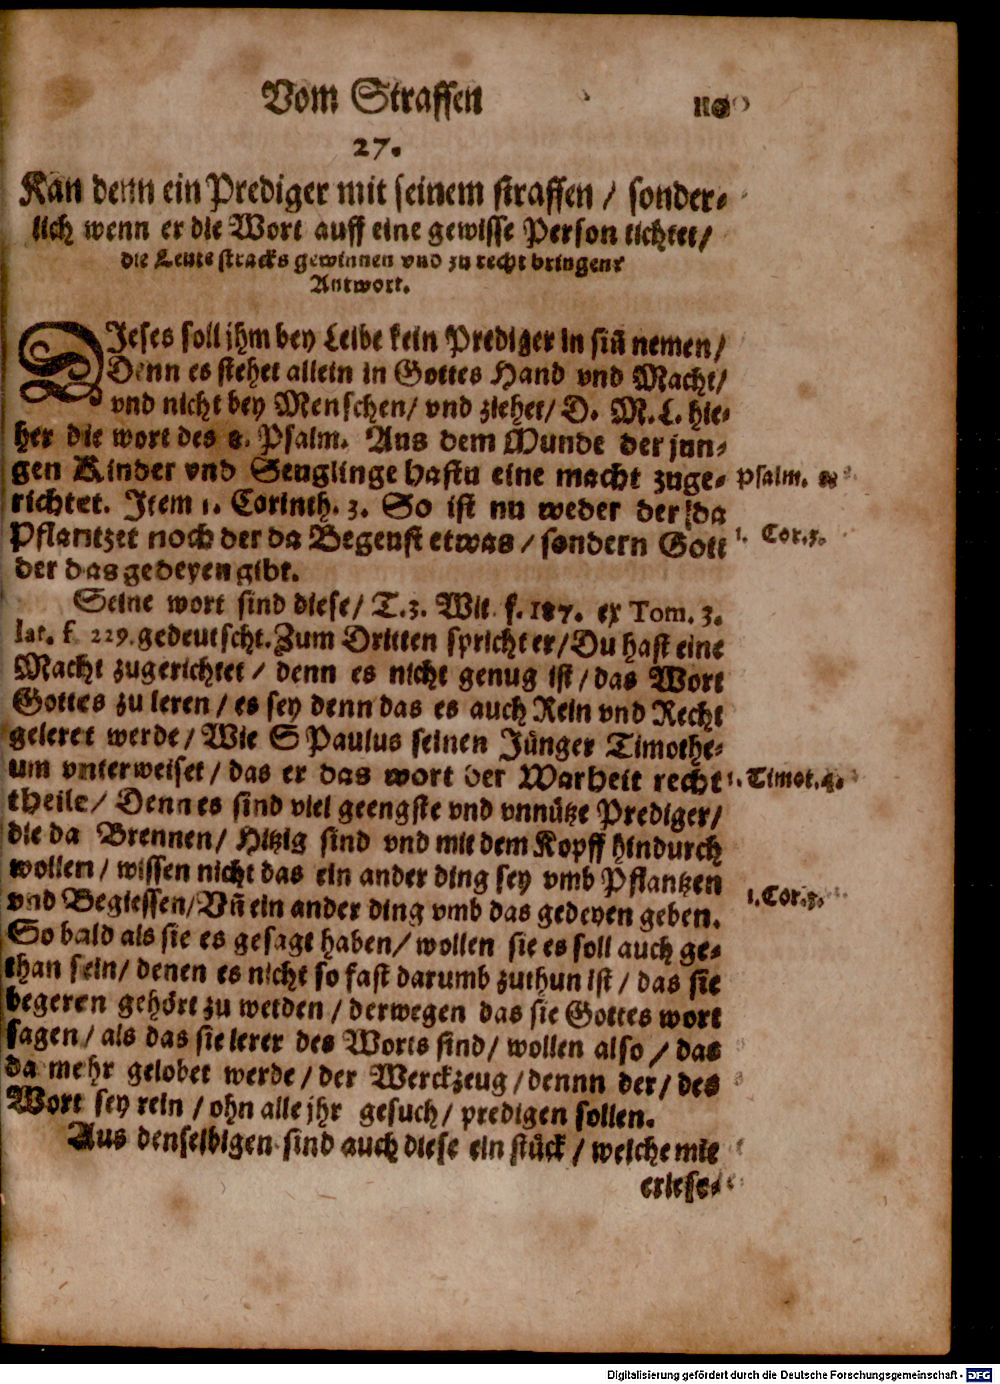 Vom Straffen 110
27.
Kan denn ein Prediger mit seinem straffen / sonder-
lich wenn er die Wort auff eine gewisse Person richtet/
die Leute stracks gewinnen vnd zu recht bringen?
Antwort.
DIeses soll jhm bey Leibe kein Prediger in siñ nemen/
Denn es stehet allein in Gottes Hand vnd Macht/
vnd nicht bey Menschen/ vnd ziehet/ D. M. L. hie-
her die wort des 8. Psalm. Aus dem Munde der jun-
gen Kinder vnd Seuglinge hastu eine macht zuge- Psalm. 8
richtet. Item 1. Corinth. 3. So ist nu weder der da
Pflantzet noch der da Begeust etwas / sondern Gott 1. Cor. 3.
der das gedeyen gibt.
Seine wort sind diese/ T. 3. Wit. f. 187. ex Tom. 3.
lat. f 229. gedeutscht. Zum Dritten spricht er/ Du hast eine
Macht zugerichtet / denn es nicht genug ist / das Wort
Gottes zu leren / es sey denn das es auch Rein vnd Recht
geleret werde/ Wie S Paulus seinen Jünger Timothe-
um vnterweiset / das er das wort der Warheit recht 1. Timot. 4.
theile/ Denn es sind viel geengste vnd vnnütze Prediger/
die da Brennen/ Hitzig sind vnd mit dem Kopff hindurch
wollen / wissen nicht das ein ander ding sey vmb Pflantzen
vnd Begiessen/ Vñ ein ander ding vmb das gedeyen geben. 1. Cor. 3.
So bald als sie es gesagt haben/ wollen sie es soll auch ge-
than sein/ denen es nicht so fast darumb zuthun ist / das sie
begeren gehört zu werden / derwegen das sie Gottes wort
sagen / als das sie lerer des Worts sind/ wollen also / das
da mehr gelobet werde / der Werckzeug / dennn der/ des
Wort sey rein / ohn alle jhr gesuch/ predigen sollen.
Aus denselbigen sind auch diese ein stück / welche mit
erlese-
Digitalisierung gefördert durch die Deutsche Forschungsgemeinschaft - DFG